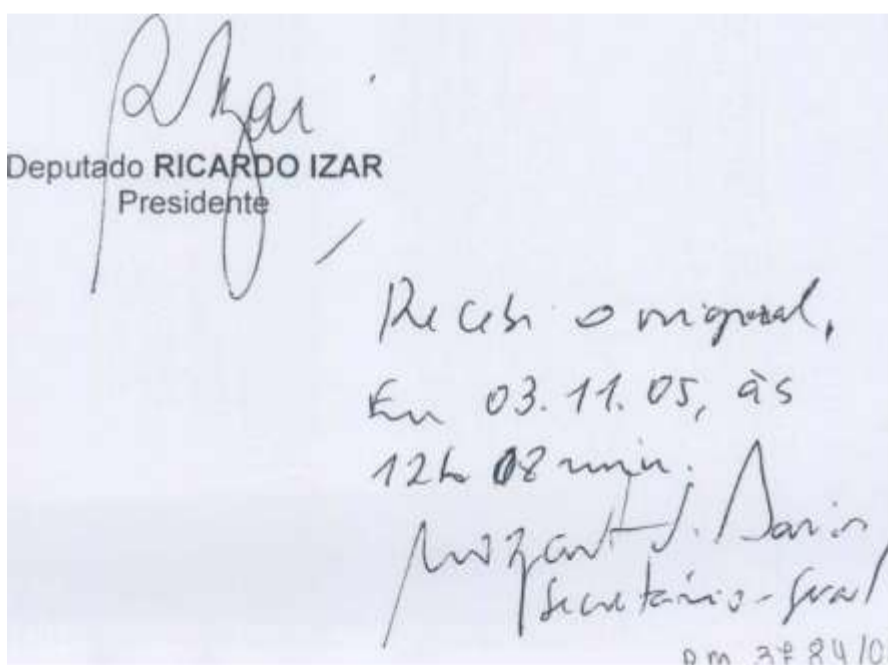 R Izar
Deputado RICARDO IZAR
Presidente
Recebi o original,
Em 03.11.05, às
12h 08 min.
Mozart
Secretário-Geral